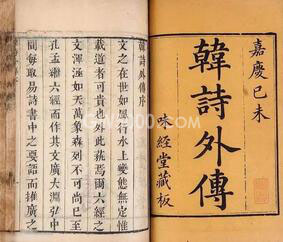 嘉慶己未
韓詩外傳
味經堂藏板
韓詩外傳序
文之在世如風行水上變態無定惟
載道者可貴也外此蓋焉爾六經之
文渾涵如天萬象森列不可尚已至
孔孟繼六經而作其文廣大淵弘中
間每取易詩書中之要語而推廣之